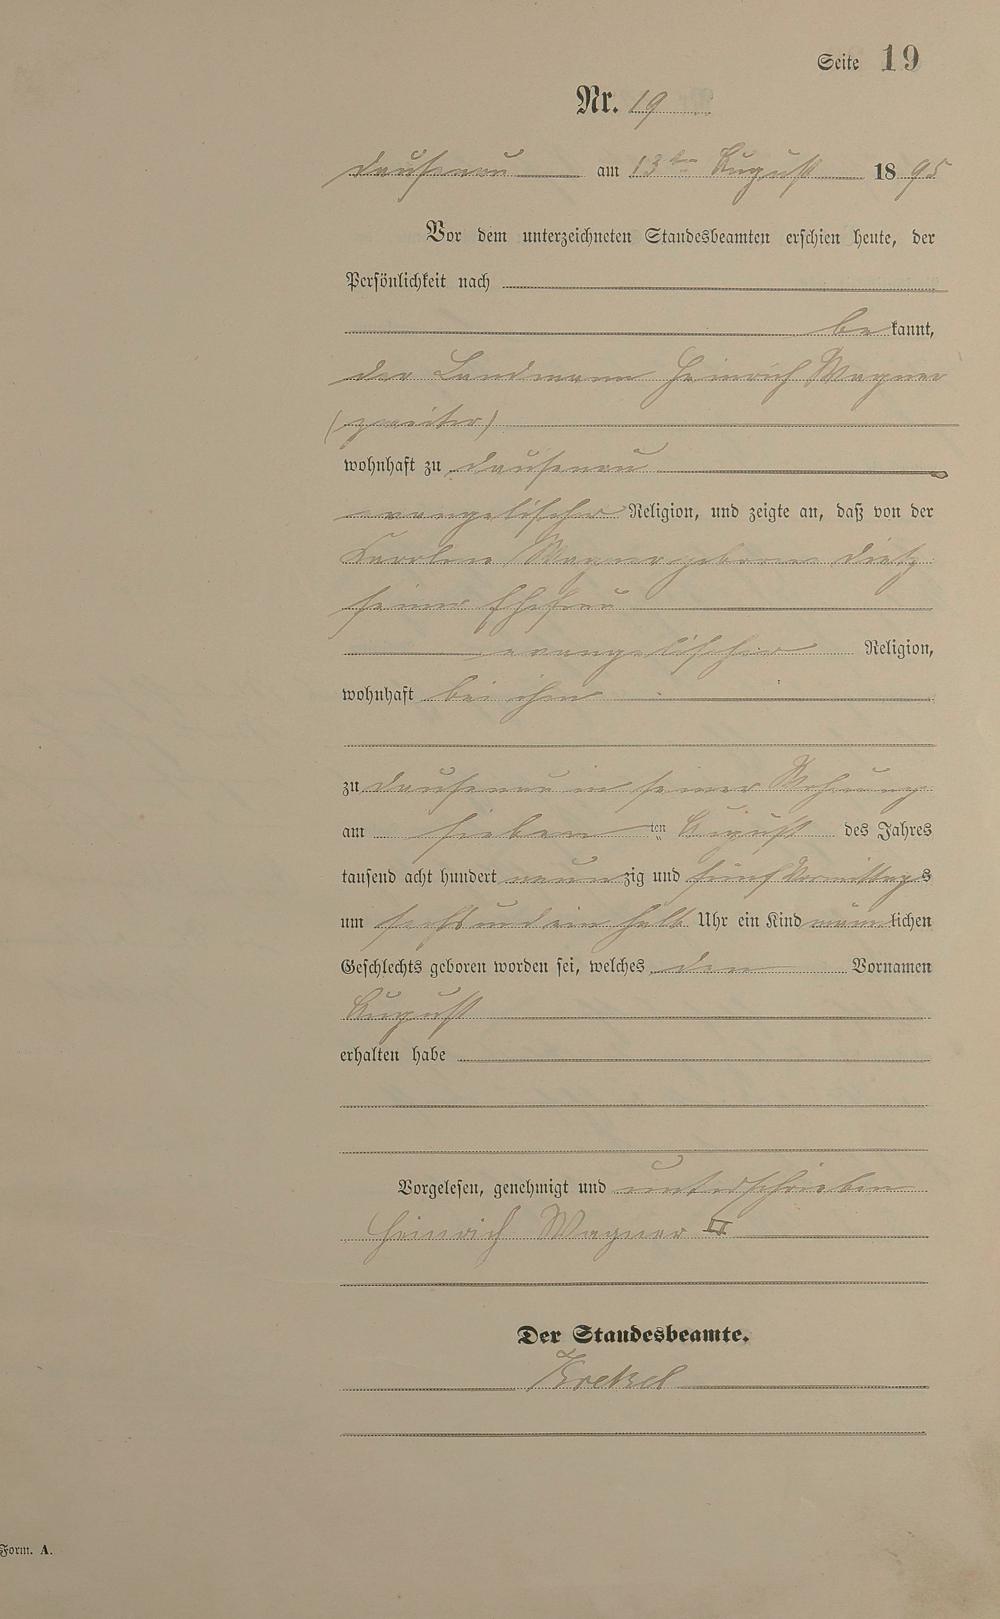 Seite 19
Nr. 19
Dausenau am 13ten August 1895
Vor dem unterzeichneten Standesbeamten erschien heute, der
Persönlichkeit nach
bekannt,
der Landmann Heinrich Wagner
(zweiter)
wohnhaft zu Dausenau
evangelischer Religion, und zeigte an, daß von der
Karoline Wagner geborene Dietz
seiner Ehefrau
evangelischer Religion,
wohnhaft bei ihm
zu Dausenau in seiner Wohnung
am sieben ten August des Jahres
tausend acht hundert neunzig und fünf Vormittags
um sechs und ein halb Uhr ein Kind männlichen
Geschlechts geboren worden sei, welches den Vornamen
August
erhalten habe
Vorgelesen, genehmigt und unterschrieben
Heinrich Wagner II
Der Standesbeamte.
Krekel
Form. A.